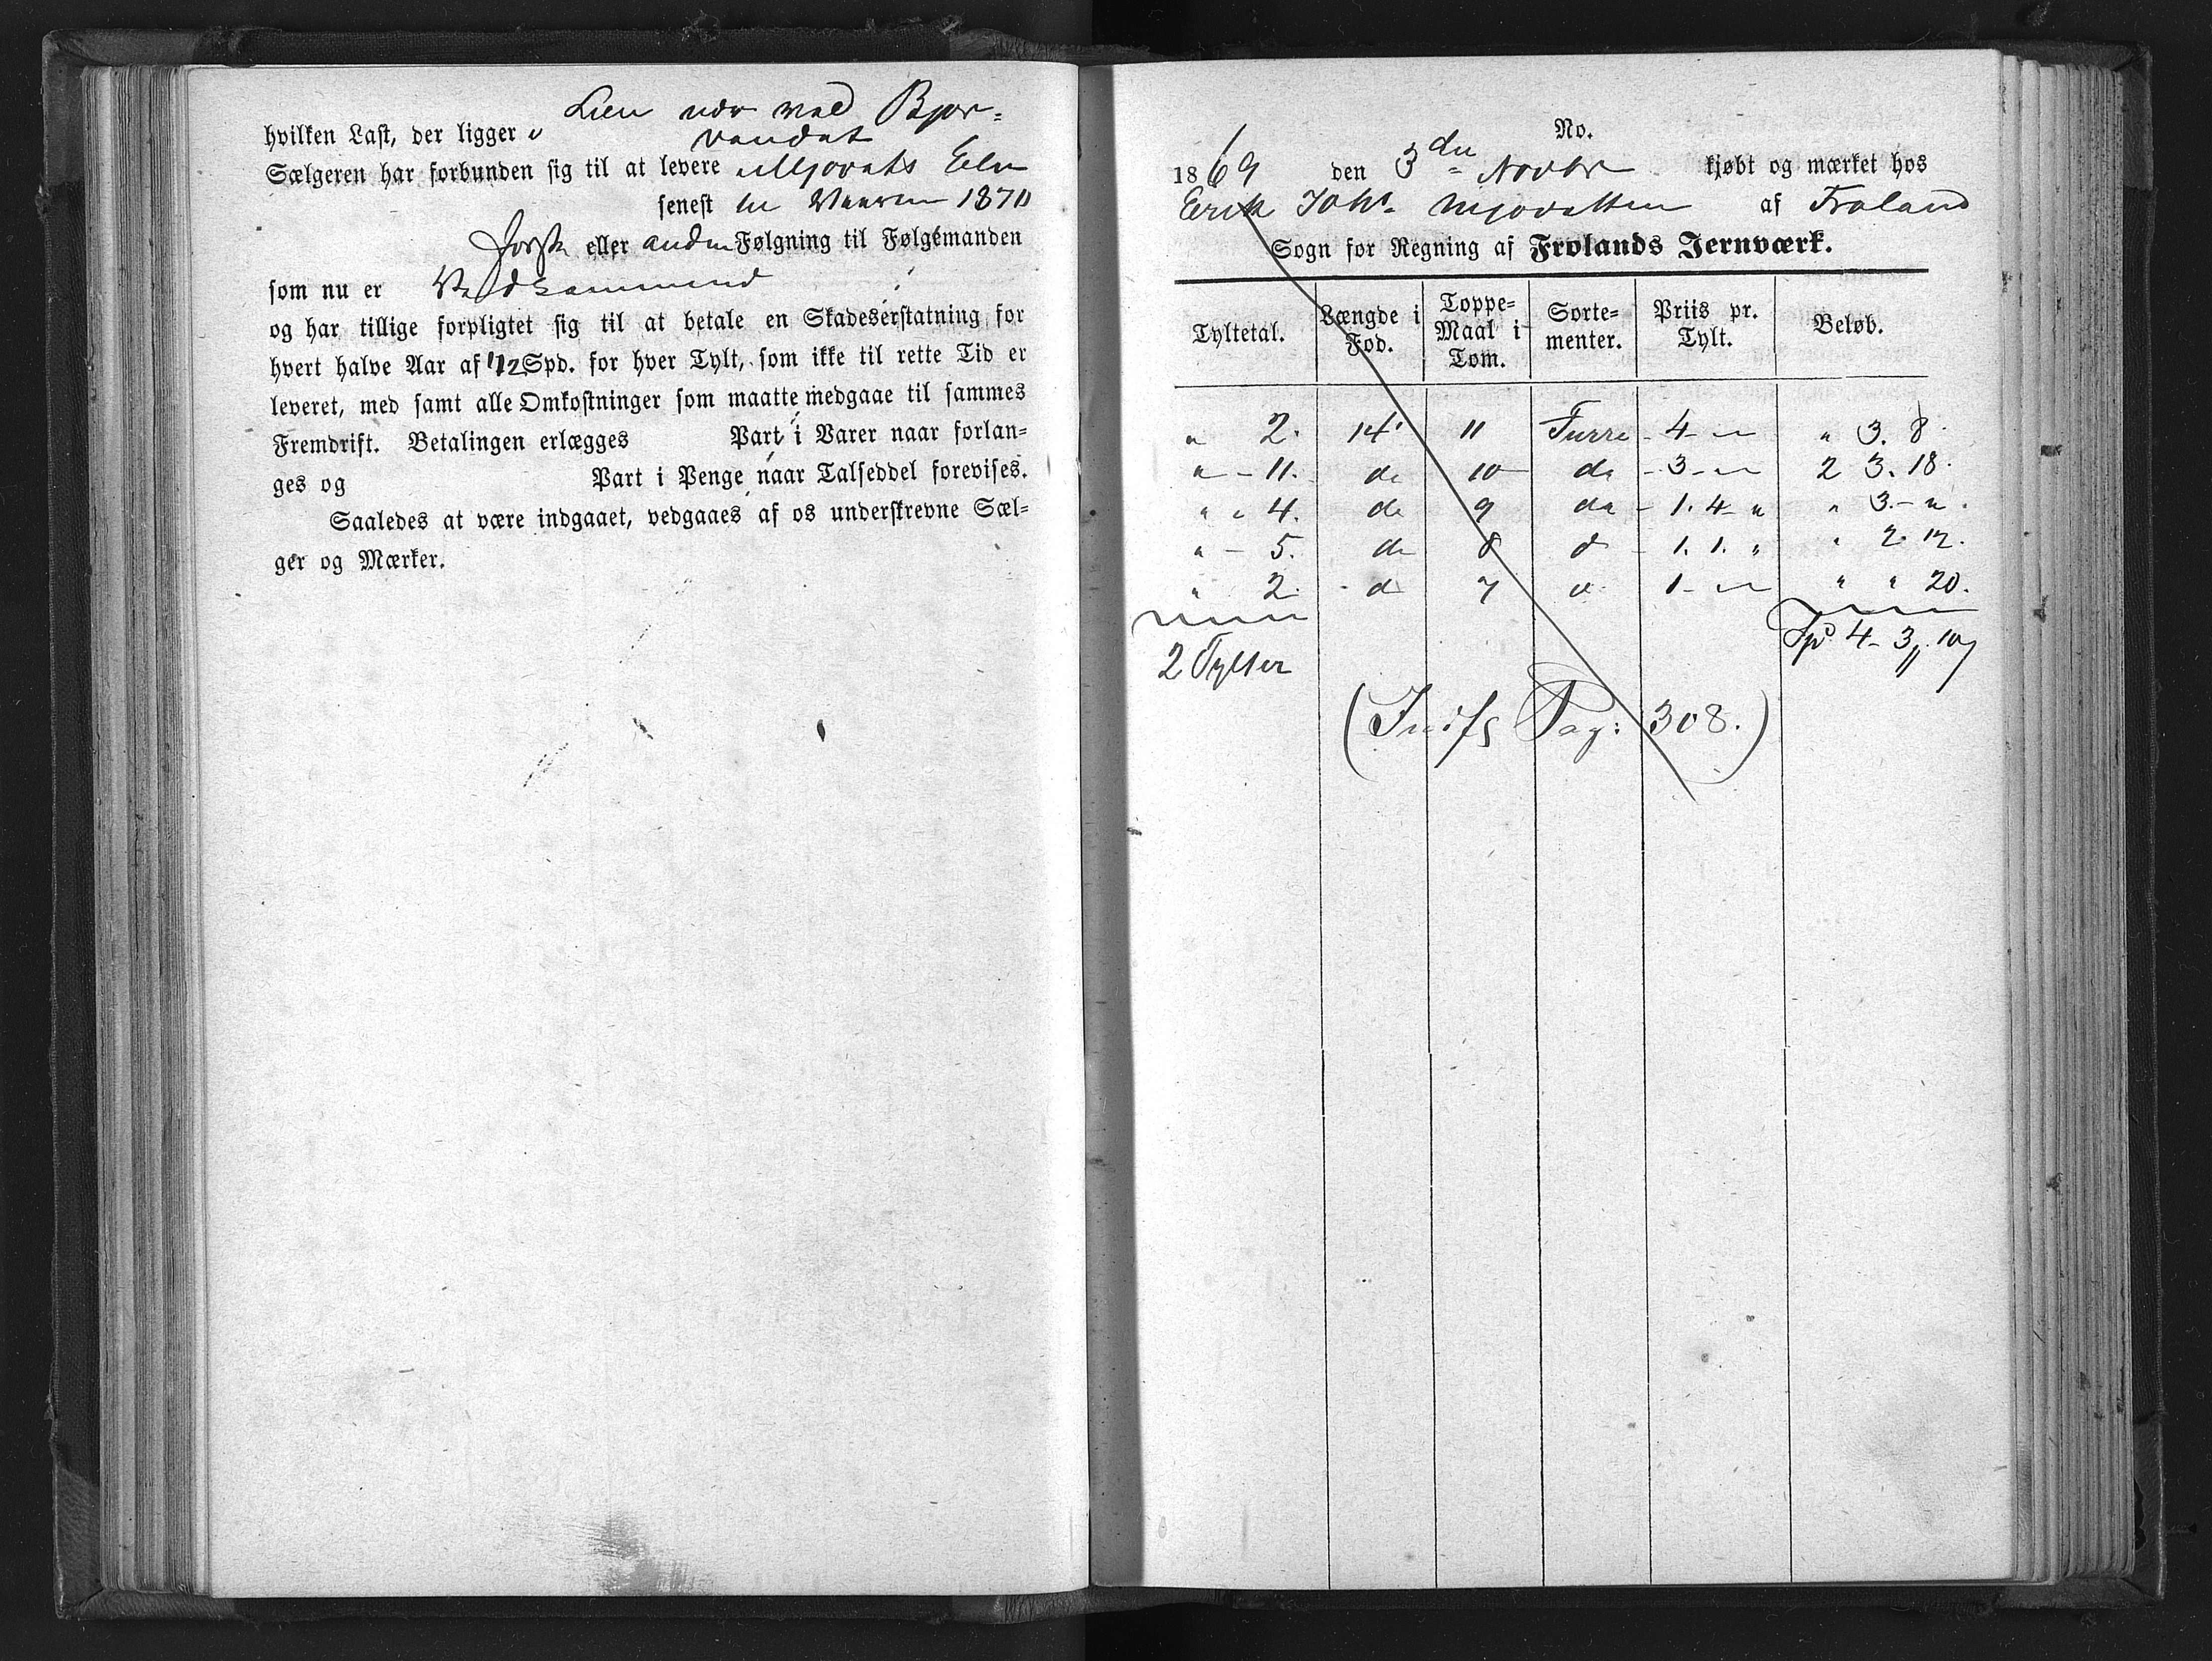 Lien nær ved Bjor-
hvilken Last, der ligger i vandet
Sælgeren har forbunden sig til at levere i Mjovats Elv
senest til Vaaren 1870
første eller anden Følgning til Følgemanden
som nu er Vedkommend
og har tillige forpligtet sig til at betale en Skadeserstatning for
hvert halve Aar af 1/2 Spd. for hver Tylt, som ikke til rette Tid er
leveret, med samt alle Omkostninger som maatte medgaae til sammes
Fremdrift. Betalingen erlægges Part i Varer naar forlan-
ges og Part i Penge naar Talseddel forevises.
Saaledes at være indgaaet, vedgaaes af os underskrevne Sæl-
ger og Mærker.
No.
1869 den 3den Novbr kjøbt og mærket hos
Erik Johs. Mjovatten af Froland
Sogn for Regning af Frolands Jernværk.
Tyltetal. Længde i Fod. Toppe-Maal i Tom. Sorte-menter. Priis pr. Tylt. Beløb.
" 2. 14' 11 Furre - 4 - " " 3. 8.
" - 11. do 10 do - 3 - " 2 3. 18.
" " 4. do 9 do - 1. 4 - " " 3. - ".
" - 5. do 8 d - 1. 1. " " 2. 12.
" 2. d 7 d 1 - " " " 20.
2 Tylter Spd 4 - 3 " 10
(Indf Pag: 308.)